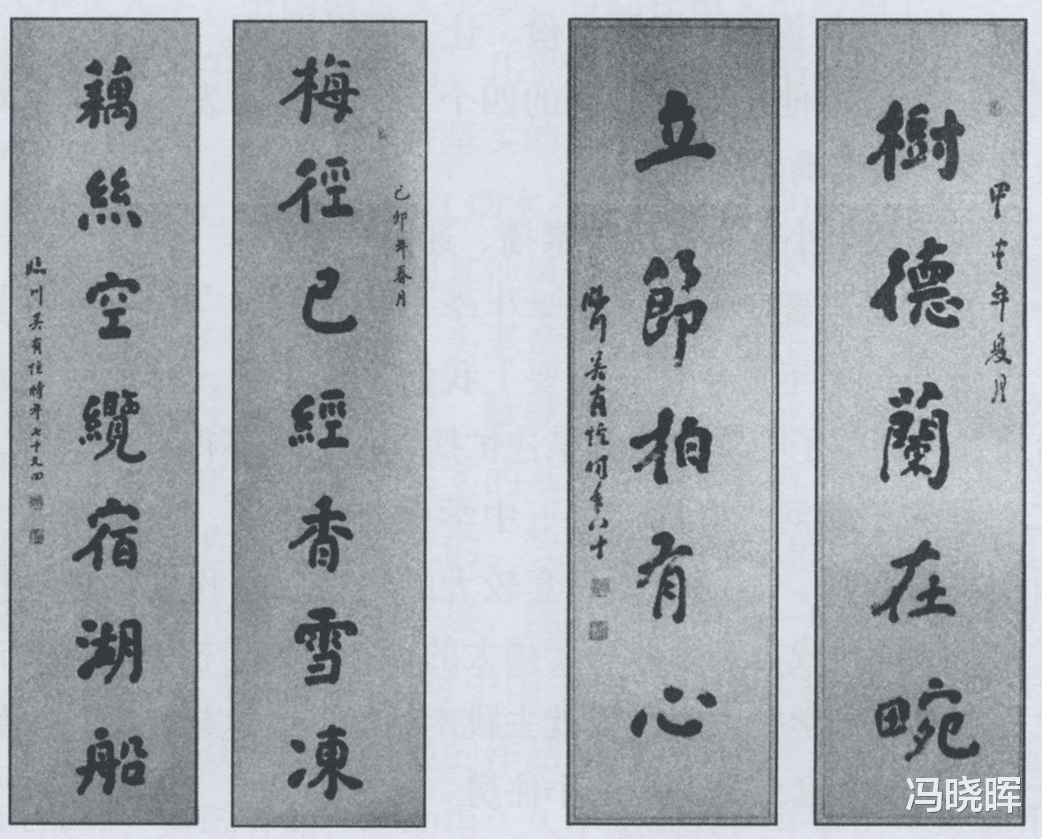 甲申年夏月
樹德蘭在畹
立節柏有心
臨川吳有恒時年八十
己卯年春月
梅徑已經香雪凍
藕絲空纜宿湖船
臨川吳有恒時年七十又四
冯晓晖